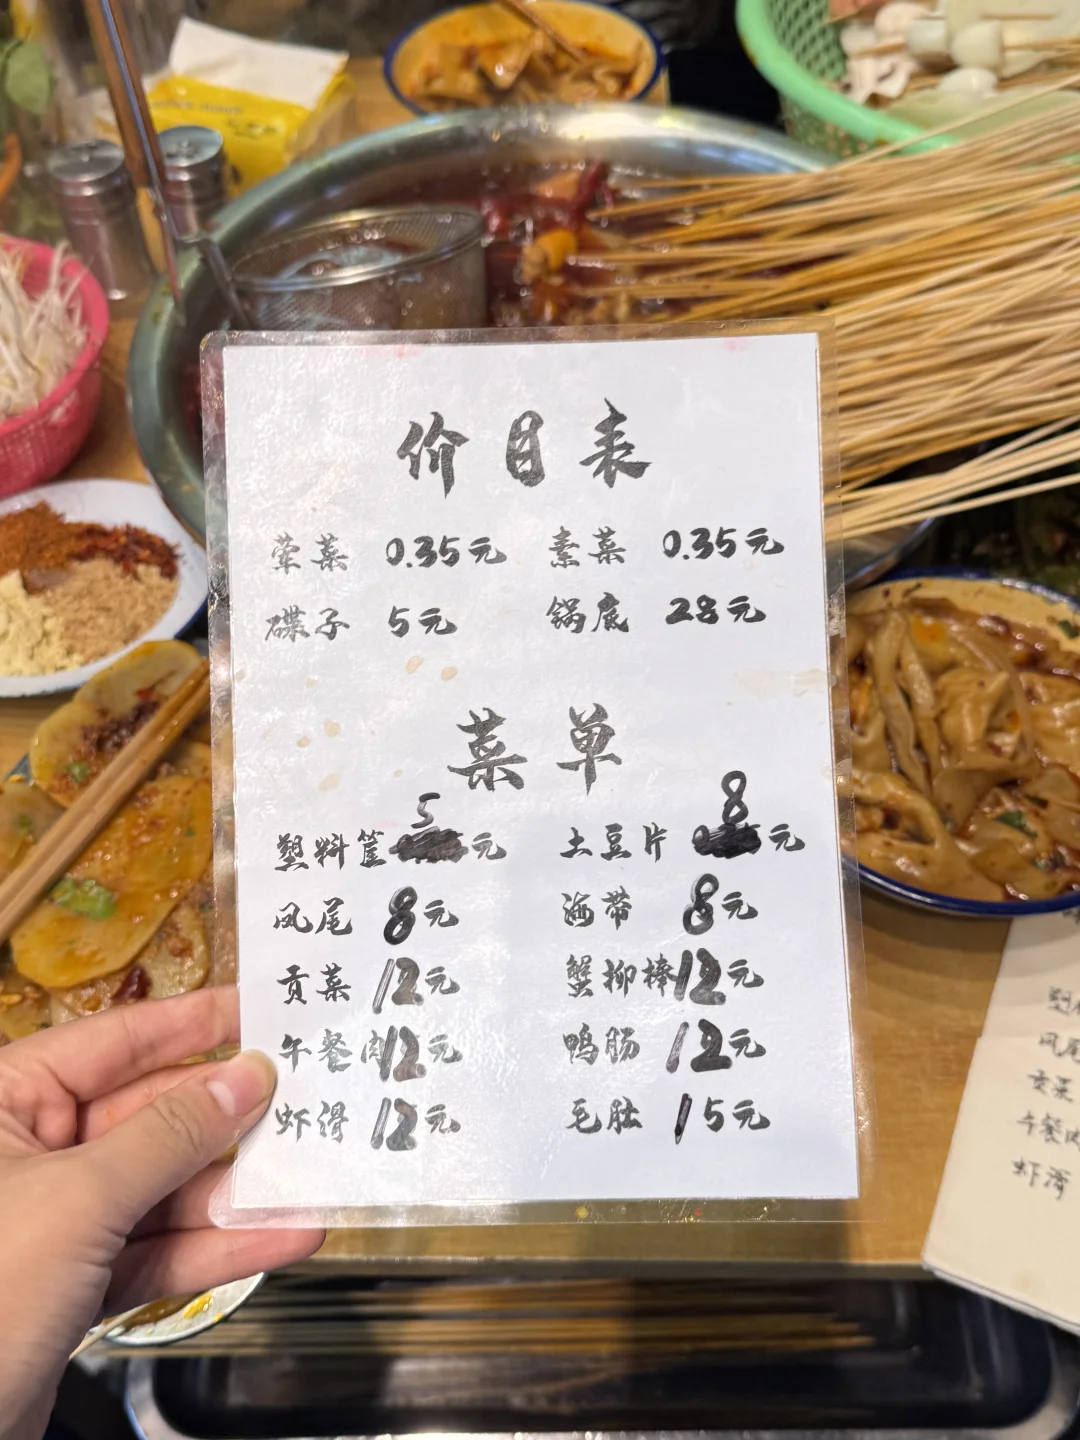 价目表
荤菜 0.35元 素菜 0.35元
碟子 5元 锅底 28元
菜单
塑料筐 5元 土豆片 8元
凤尾 8元 海带 8元
贡菜 12元 蟹柳棒 12元
午餐肉 12元 鸭肠 12元
虾滑 12元 毛肚 15元
凤尾
贡菜
午餐肉
虾滑